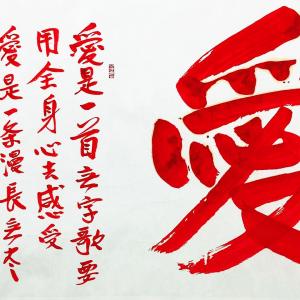 愛
愛是一首无字歌要
用全身心去感受
愛是一条漫長无